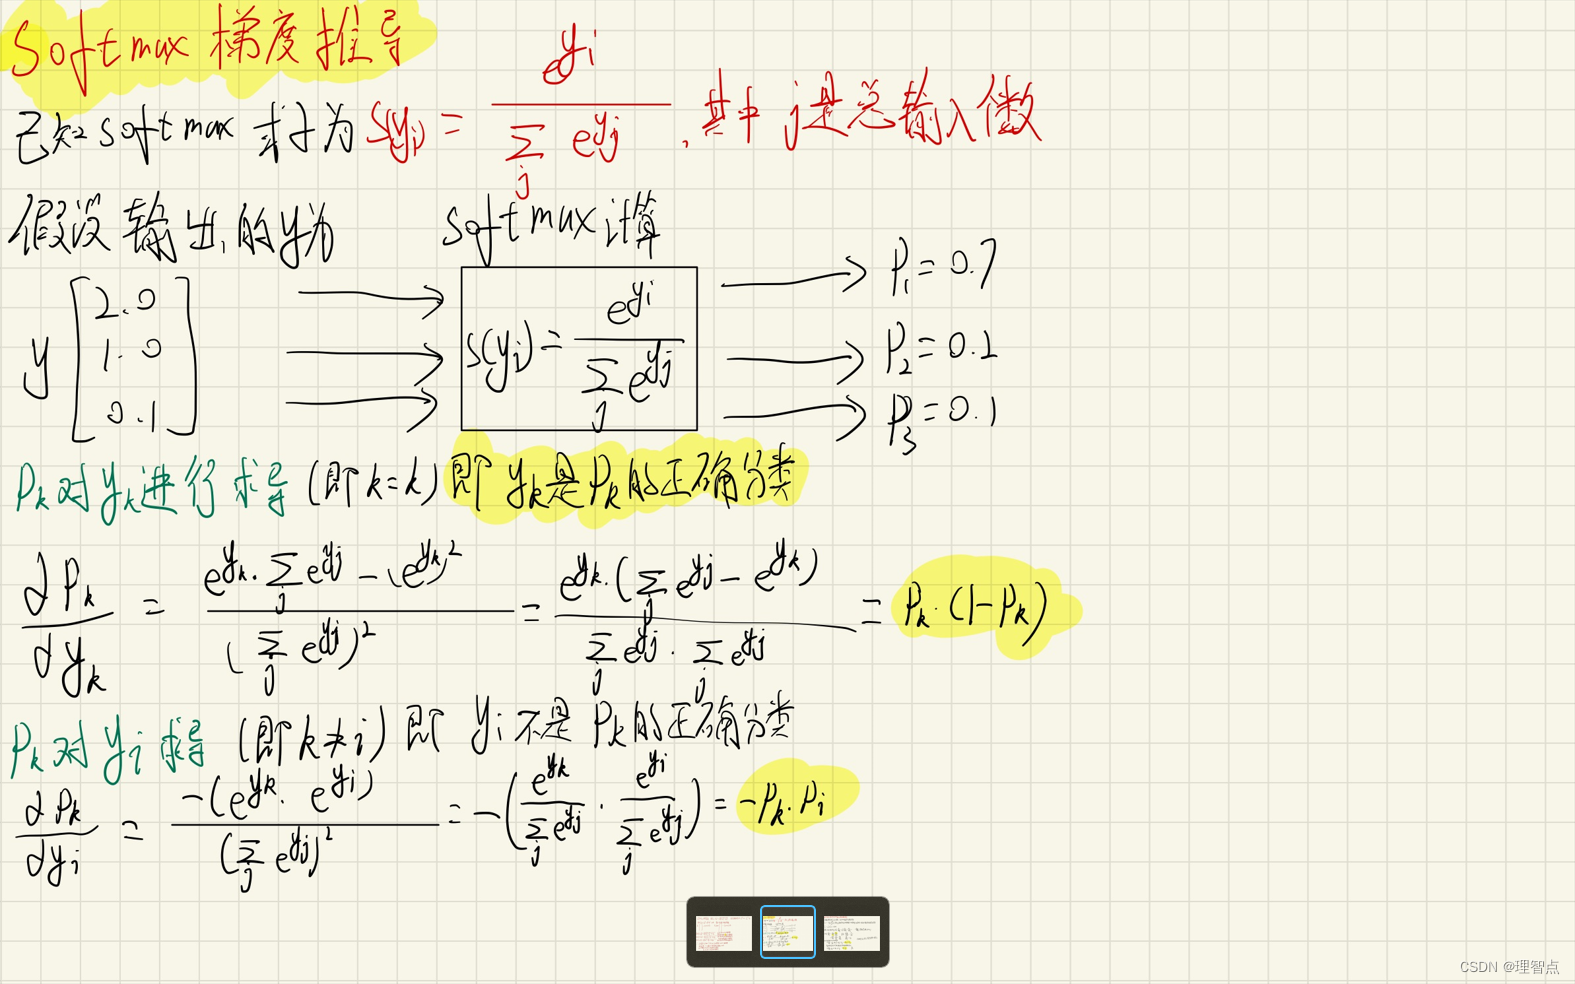 Softmax 梯度推导
已知softmax 算子为 S(yi) = e^yi / Σj e^yj ,其中 j是总输入个数
假设输出的y为 softmax计算
y [2.0 1.0 0.1] S(yi) = e^yi / Σj e^yj
P1 = 0.7
P2 = 0.2
P3 = 0.1
Pk对yk进行求导 (即k=k) 即 yk是Pk的正确分类
∂Pk / ∂yk = (e^yk · Σj e^yj − (e^yk)^2) / (Σj e^yj)^2 = e^yk · (Σj e^yj − e^yk) / (Σj e^yj · Σj e^yj) = Pk · (1−Pk)
Pk对yi求导 (即k≠i) 即 yi不是Pk的正确分类
∂Pk / ∂yi = −(e^yk · e^yi) / (Σj e^yj)^2 = −(e^yk / Σj e^yj · e^yi / Σj e^yj) = −Pk · Pi
CSDN @理智点